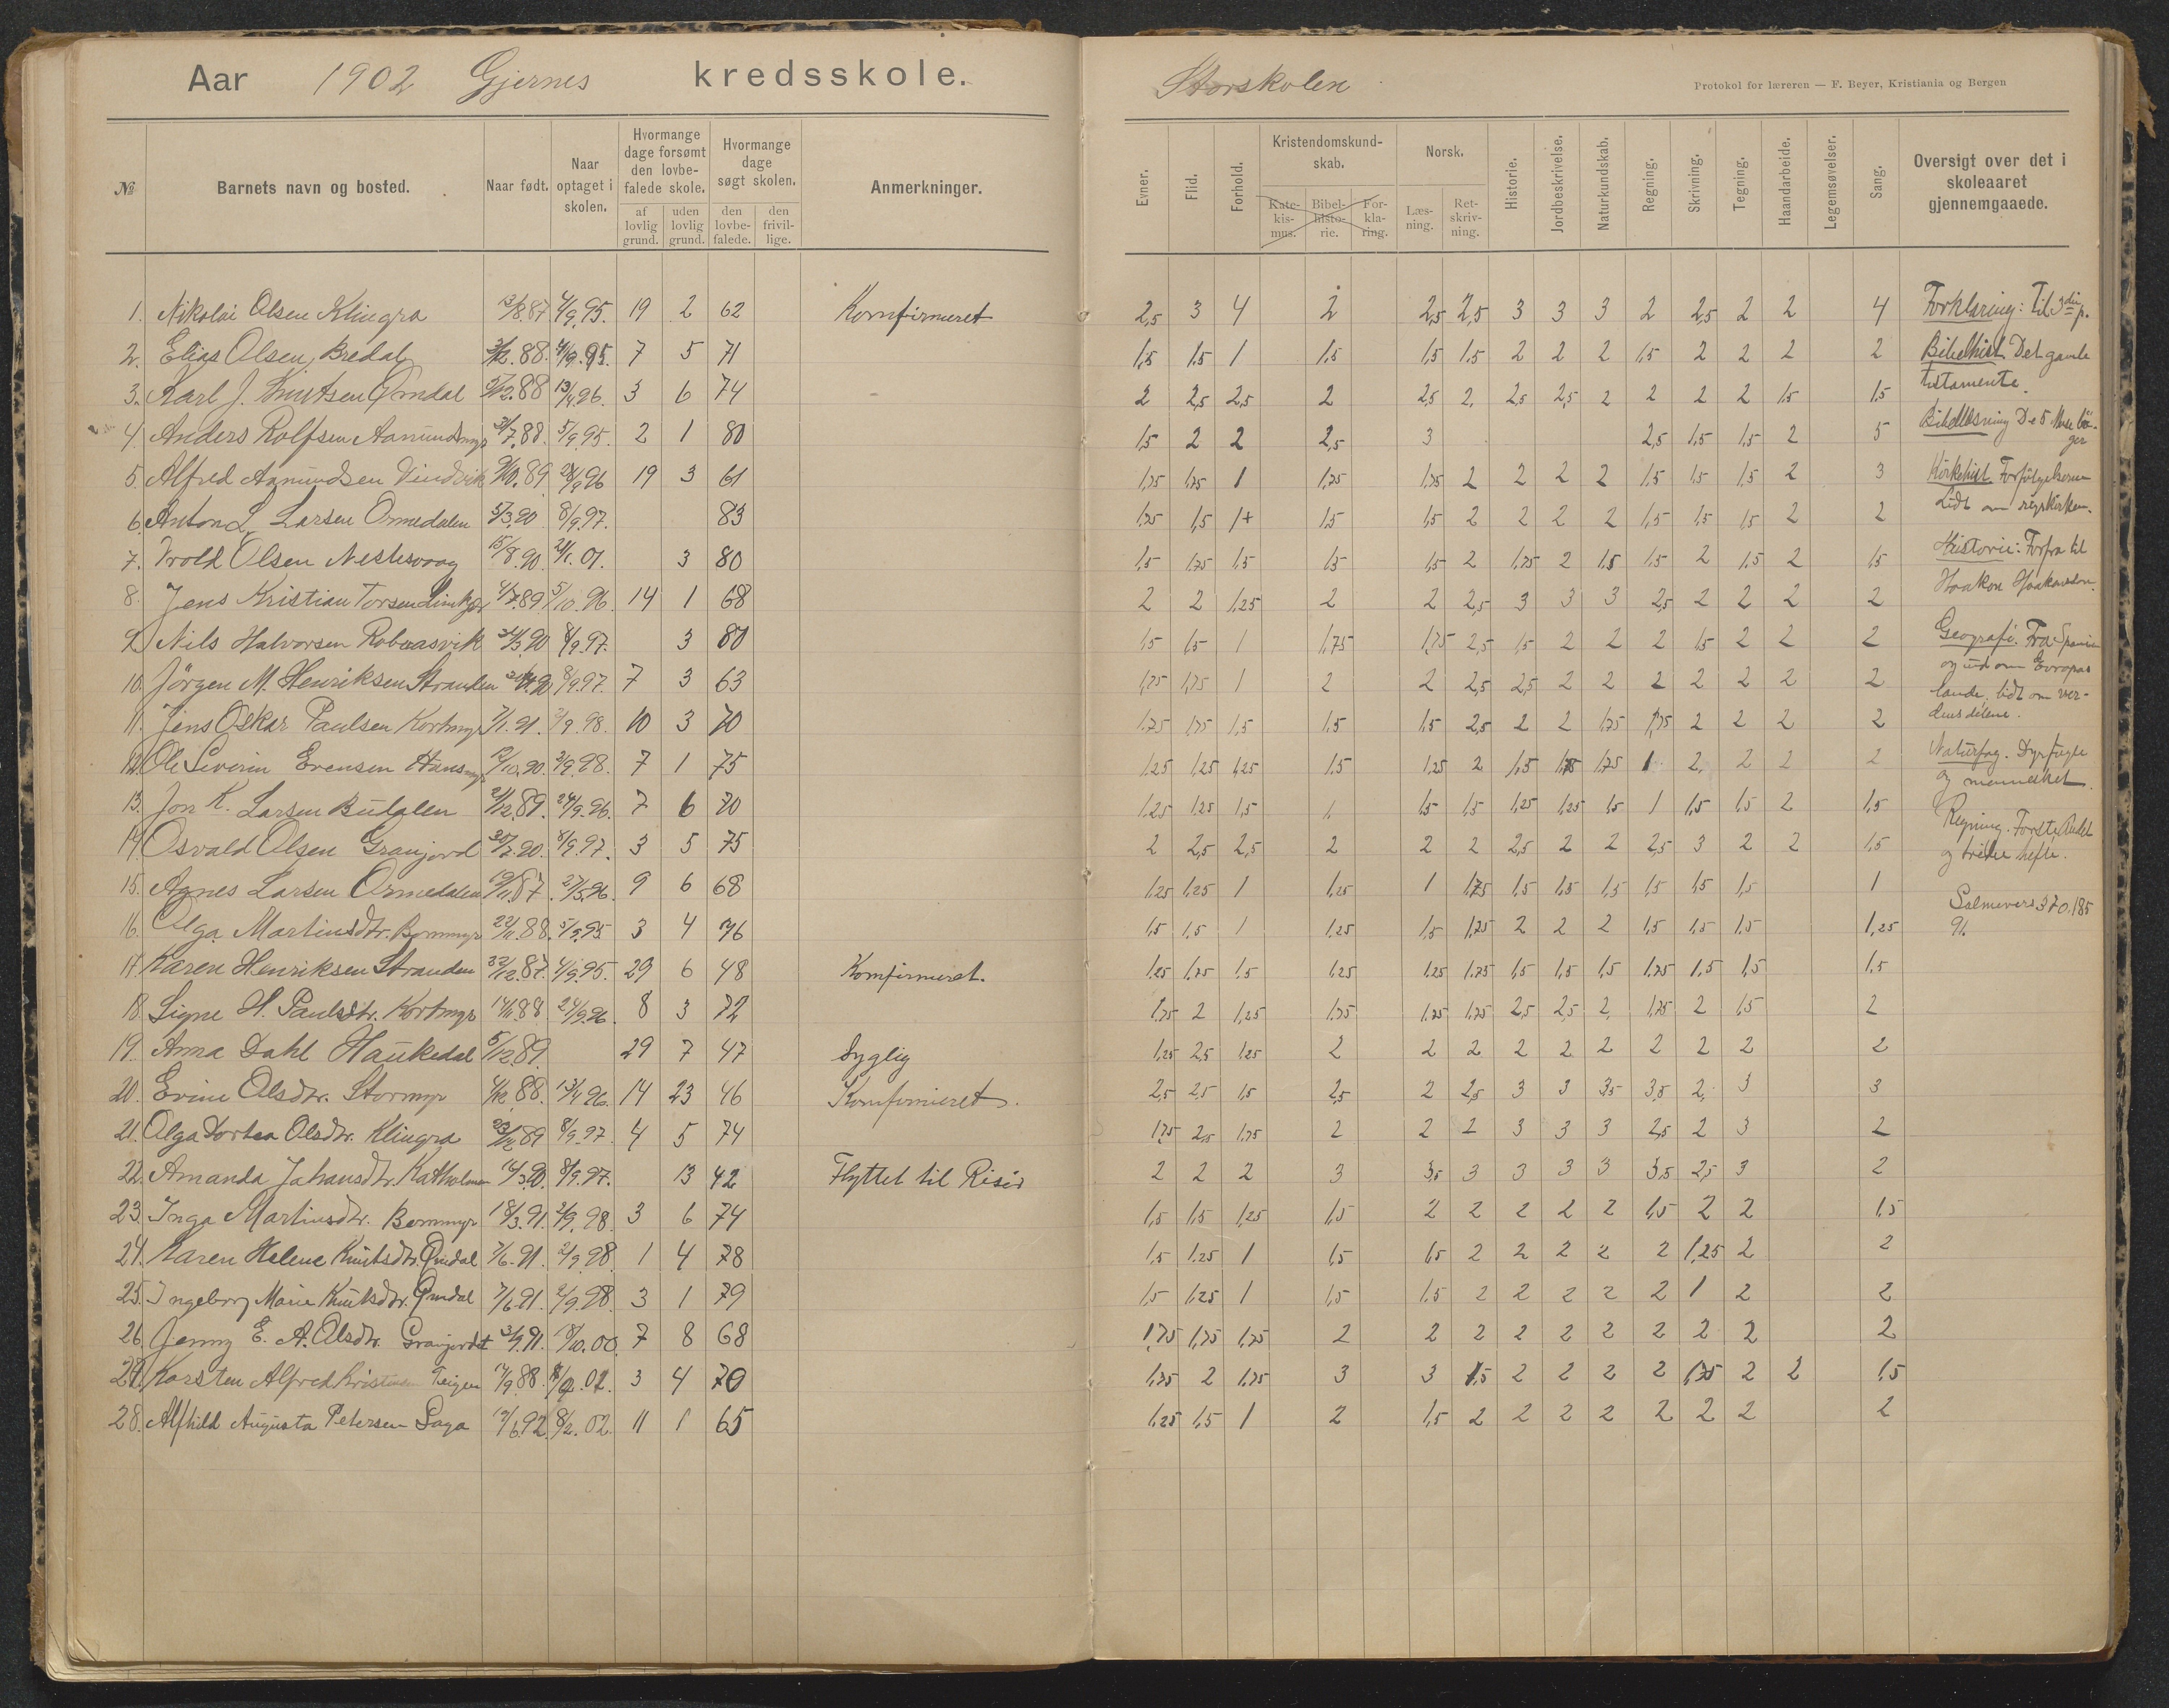 Aar 1902 Gjernes kredsskole.
Storskolen
Protokol for læreren — F. Beyer, Kristiania og Bergen
№ Barnets navn og bosted. Naar født. Naar optaget i skolen. Hvormange dage forsømt den lovbefalede skole. af lovlig grund. uden lovlig grund. Hvormange dage søgt skolen. den lovbefalede. den frivillige. Anmerkninger.
Evner. Flid. Forhold. Kristendomskundskab. Katekismus. Bibelhistorie. Forklaring. Norsk. Læsning. Retskrivning. Historie. Jordbeskrivelse. Naturkundskab. Regning. Skrivning. Tegning. Haandarbeide. Legemsøvelser. Sang. Oversigt over det i skoleaaret gjennemgaaede.
1. Nikolai Olsen Klingra 13/8.87 4/9.95. 19 2 62 Komfirmeret 2,5 3 4 2 2,5 2,5 3 3 3 2 2,5 2 2 4
2. Elias Olsen Bredal 88. 4/9.95. 7 5 71 1,5 1.5 1 1.5 1.5 1.5 2 2 2 1,5 2 2 2 2
3. Karl J. Knutsen Ømdal 88 13/4.96. 3 6 74 2 2,5 2,5 2 2,5 2. 2,5 2,5 2 2 2 2 1.5 1.5
4. Anders Rolfsen Aamundsmyr 7.88. 5/9.95. 2 1 80 1.5 2 2 2,5 3 2,5 1.5 1.5 2 5
5. Alfred Aamundsen Vindvik 9/10.89 96 19 3 61 1,75 1,75 1 1,75 1,75 2 2 2 2 1.5 1.5 1.5 2 3
6. Anton L. Larsen Ormedalen 5/3.90 8/9.97. 83 1.75 1,5 1+ 1.5 1.5 2 2 2 2 1.5 1.5 1.5 2 2
7. Trold Olsen Nestesvaag 15/8.90. 01. 3 80 1.5 1,75 1.5 1.5 1,5 2 1.75 2 1.5 1.5 2 1.5 2 1.5
8. Jens Kristian Torsen 4/7.89 5/10.96. 14 1 68 2 2 1,25 2 2 2,5 3 3 3 2,5 2 2 2 2
9. Nils Halvorsen Robaasvik 90 8/9.97. 3 80 1.5 1.5 1 1,75 1,75 2,5 1.5 2 2 2 1.5 2 2 2
10. Jörgen M. Henriksen Stranden 8/9.97. 7 3 63 1,75 1,75 1 2 2 2,5 2,5 2 2 2 2 2 2 2
11. Jens Oskar Paulsen Kortmyr 7/1.91. 2/9.98. 10 3 70 1.75 1,75 1,5 1.5 1.5 2,5 2 2 1,75 1,75 2 2 2 2
12. Ole Severin Evensen Hansmyr 12/10.90. 2/9.98. 7 1 75 1.25 1,25 1,25 1.5 1,25 2 1,5 1,75 1.75 1 2. 2 2 2
13. Jon K. Larsen Budalen 21/12.89. 24/9.96. 7 6 70 1.25 1.25 1,5 1 1.5 1.5 1,25 1,25 1.5 1 1.5 1.5 2 1.5
14. Osvald Olsen Granjord 90. 8/9.97. 3 5 75 2 2,5 2,5 2 2 2 2,5 2 2 2,5 3 2 2 1.5
15. Agnes Larsen Ormedalen 19/11.87. 27/5.96. 9 6 68 1.25 1.25 1 1,25 1 1.75 1.5 1.5 1.5 1.5 1.5 1.5 1
16. Olga Martinsdtr. Bommyr 22/11.88. 5/9.95 3 4 76 1.5 1.5 1 1.25 1.5 1.25 2 2 2 1.5 1.5 1.5 1,25
17. Karen Henriksen Stranden 22/12.87. 4/9.95. 29 6 48 Komfirmeret. 1.25 1.75 1.5 1.25 1.25 1.75 1.5 1.5 1.5 1.75 1.5 1.5 1.5
18. Signe H. Paulsdtr. Kortmyr 14/11.88 24/9.96. 8 3 72 1.75 2 1,25 1.75 1.75 1.75 2,5 2,5 2. 1,75 2 1.5 2
19. Anna Dahl Haukedal 5/12.89. 29 7 47 Syglig 1,25 2,5 1.25 2 2 2 2 2 2 2 2 2 2
20. Evine Olsdtr. Stormyr 88. 13/4.96. 14 23 46 Komfirmeret. 2,5 2,5 1.5 2,5 2 2,5 3 3 3,5 3,5 2. 3 3
21. Olga Dortea Olsdtr. Klingra 89 8/9.97. 4 5 74 1,75 2,5 1.75 2 2 2 3 3 3 2,5 2 3 2
22. Amanda Johansdtr. Katholmen 14/3.90. 8/9.97. 13 42 Flyttet til Risör 2 2 2 3 3,5 3 3 3 3 3,5 2,5 3 2
23. Inga Martinsdtr. Bommyr 18/3.91. 2/9.98. 3 6 74 1,5 1,5 1,25 1,5 2 2 2 2 2 1,5 2 2 1.5
24. Karen Helene Knutsdtr. Ømdal 7/6.91. 2/9.98. 1 4 78 1.5 1.25 1 1.5 1.5 2 2 2 2 2 1,25 2 2
25. Ingeborg Marie Knutsdtr. Ømdal 7/6.91. 2/9.98. 3 1 79 1.5 1.25 1 1,5 1.5 2 2 2 2 2 1 2 2
26. Jenny E. A. Olsdtr. Granjordet 91. 00. 7 8 68 1,75 1,75 1,75 2 2 2 2 2 2 2 2 2 2
27. Karsten Alfred Kristensen Teigen 17/9.88. 02. 3 4 70 1.75 2 1.75 3 3 1.5 2 2 2 2 1,75 2 2 1.5
28. Alfhild Augusta Petersen Saga 12/6.92. 8/2.02. 11 1 65 1.25 1.5 1 2 1,5 2 2 2 2 2 2 2 2
Forklaring: Til 3die p.
Bibelhist. Det gamle
testamente.
Bibellæsning De 5 Mose bö-
ger
Kirkehist. Forfölgelserne
Lidt om rigskirken.
Historie: Forfra til
Haakon Haakonsson.
Geografi. Fra Spanien
og ud om Evropas
lande, lidt om ver-
densdelene.
Naturfag. Dyr fugle
og mennesket.
Regning. Förste, Andet
og tredie hefte.
Salmevers 370. 185
91.